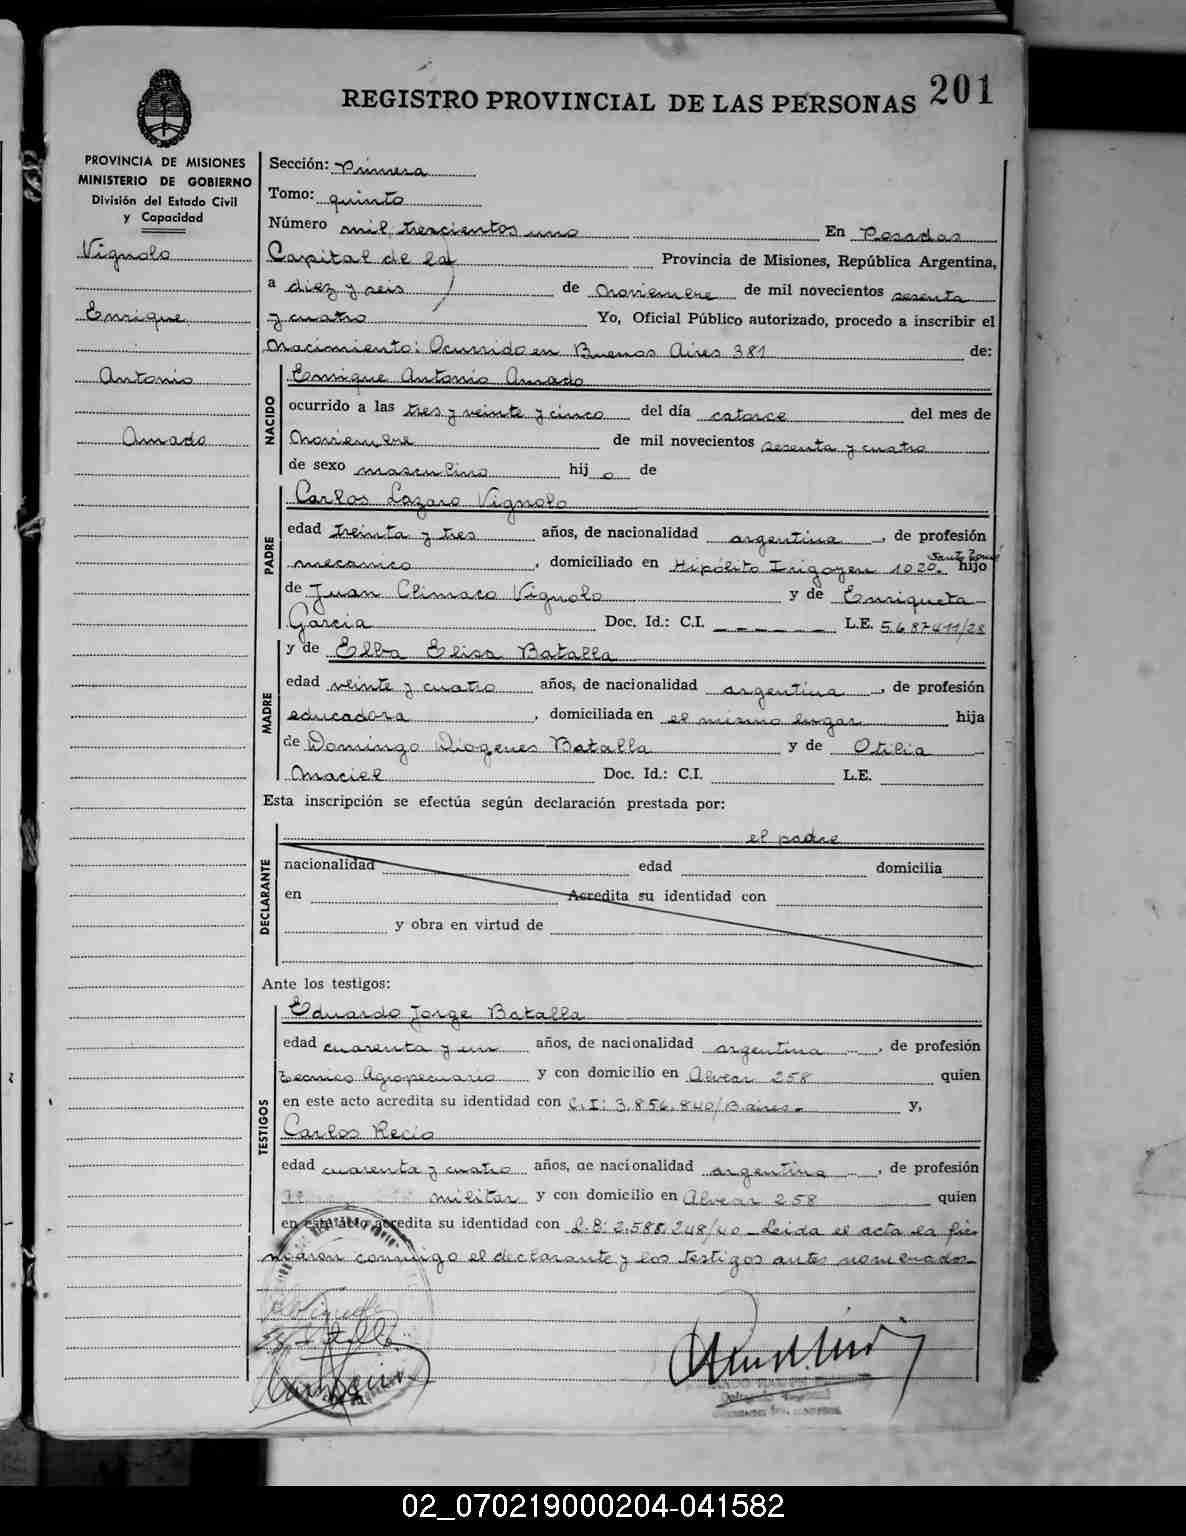 REGISTRO PROVINCIAL DE LAS PERSONAS 201
PROVINCIA DE MISIONES
MINISTERIO DE GOBIERNO
División del Estado Civil
y Capacidad
Vignolo
Enrique
Antonio
Amado
Sección: Primera
Tomo: quinto
Número mil trescientos uno En Posadas
Capital de la Provincia de Misiones, República Argentina,
a diez y seis de Noviembre de mil novecientos sesenta
y cuatro Yo, Oficial Público autorizado, procedo a inscribir el
Nacimiento: Ocurrido en Buenos Aires 381 de:
NACIDO
Enrique Antonio Amado
ocurrido a las tres y veinte y cinco del día catorce del mes de
Noviembre de mil novecientos sesenta y cuatro
de sexo masculino hij o de
PADRE
Carlos Lazaro Vignolo
edad treinta y tres años, de nacionalidad argentina, de profesión
mecanico, domiciliado en Hipólito Irigoyen 1020. Santo Tomé hijo
de Juan Climaco Vignolo y de Enriqueta
Garcia Doc. Id.: C.I. — — — — — — L.E. 5.687.411/28
MADRE
y de Elba Elisa Batalla
edad veinte y cuatro años, de nacionalidad argentina, de profesión
educadora, domiciliada en el mismo lugar hija
de Domingo Diógenes Batalla y de Otilia
Maciel Doc. Id.: C.I. L.E.
Esta inscripción se efectúa según declaración prestada por:
DECLARANTE
el padre
nacionalidad edad domicilia
en Acredita su identidad con
y obra en virtud de
Ante los testigos:
TESTIGOS
Eduardo Jorge Batalla
edad cuarenta y un años, de nacionalidad argentina, de profesión
Tecnico Agropecuario y con domicilio en Alvear 258 quien
en este acto acredita su identidad con C.I: 3.856.840/B.aires.- y,
Carlos Recio
edad cuarenta y cuatro años, de nacionalidad argentina, de profesión
militar y con domicilio en Alvear 258 quien
en este acto acredita su identidad con L.E: 2.588.248/40 - Leida el acta la fir
maron conmigo el declarante y los testigos antes nomerados-
02_070219000204-041582